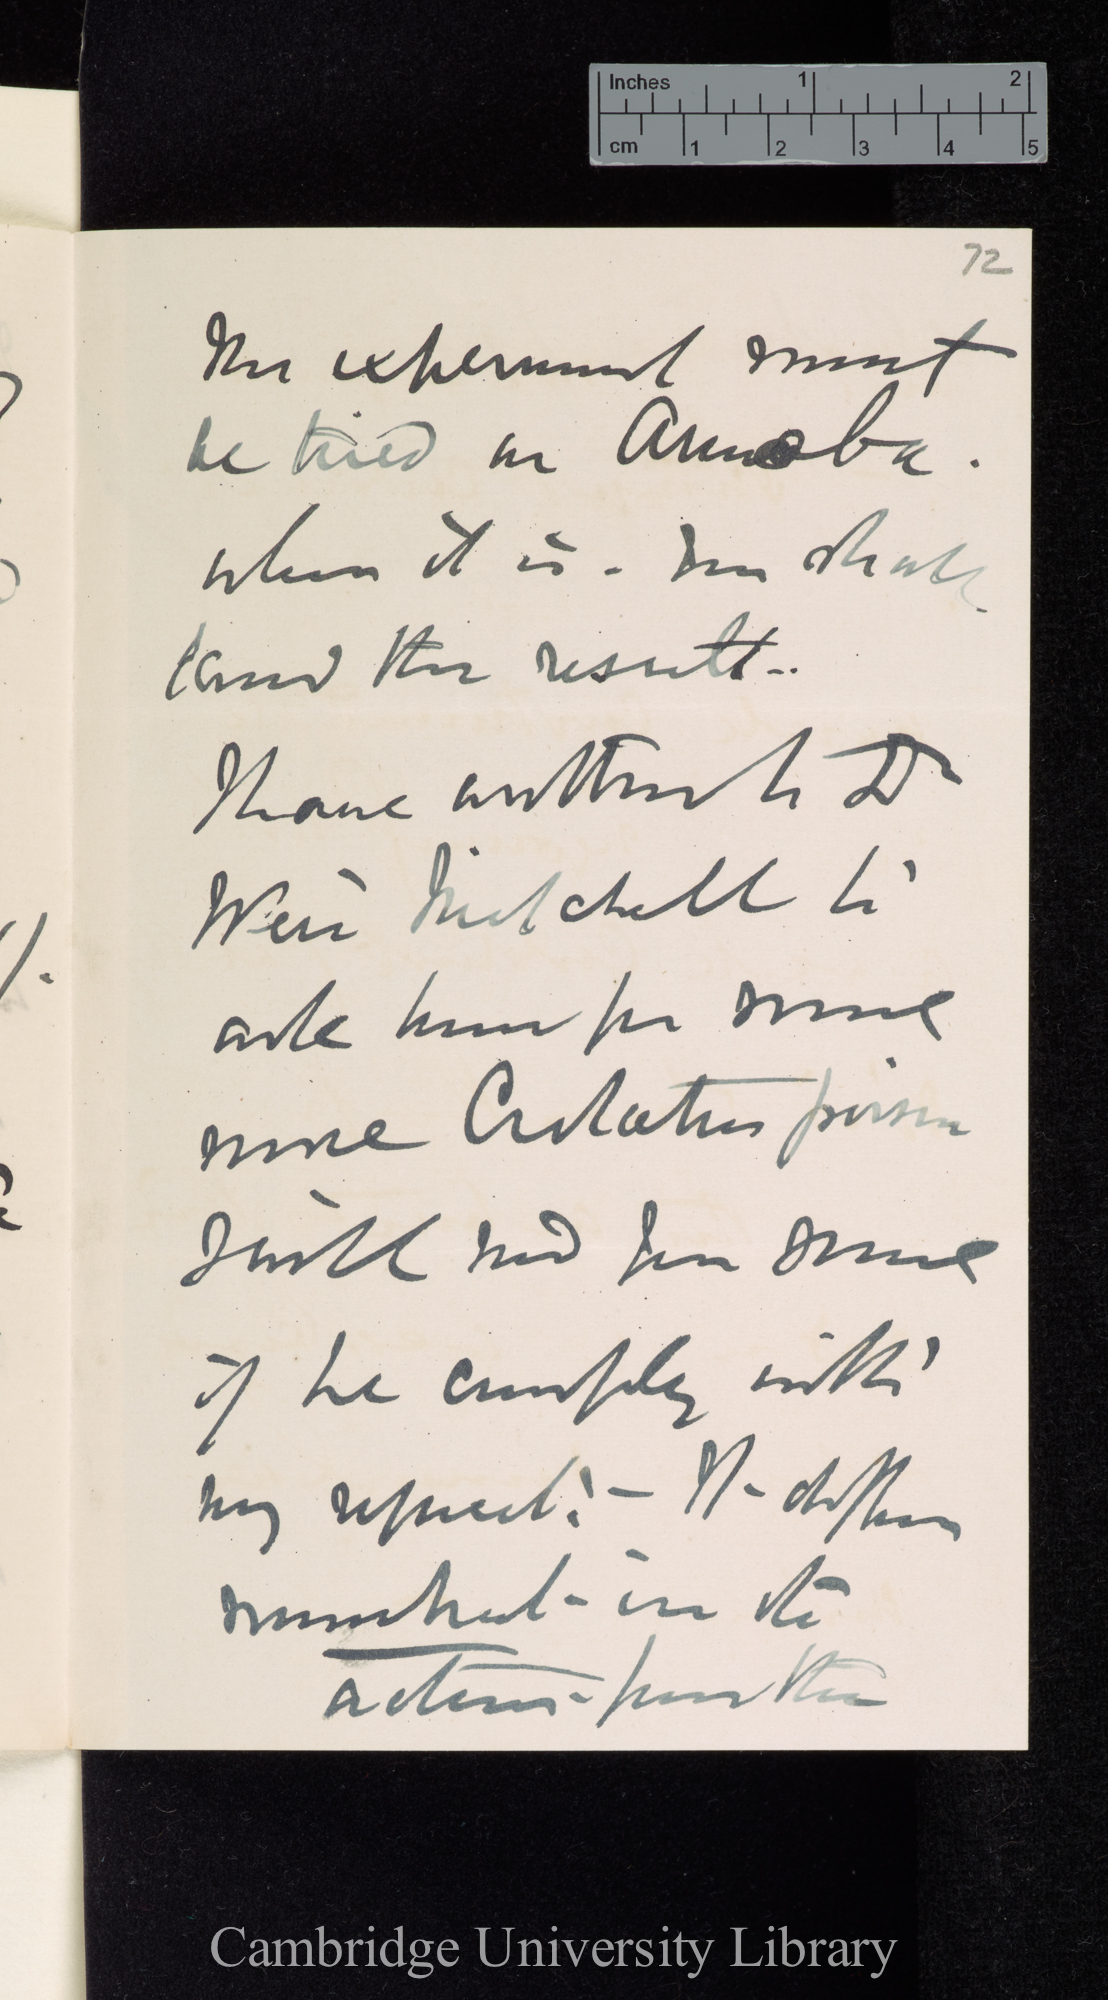 Inches 1 2
cm 1 2 3 4 5
72
The experiment must
be tried on Amoeba.
when it is. you shall
know the result..
I have written to Dr
Weir Mitchell to
ask him for some
more Crotalus poison
I will send you some
if he comply with
my request. - It differs
somewhat in its
action from the
Cambridge University Library